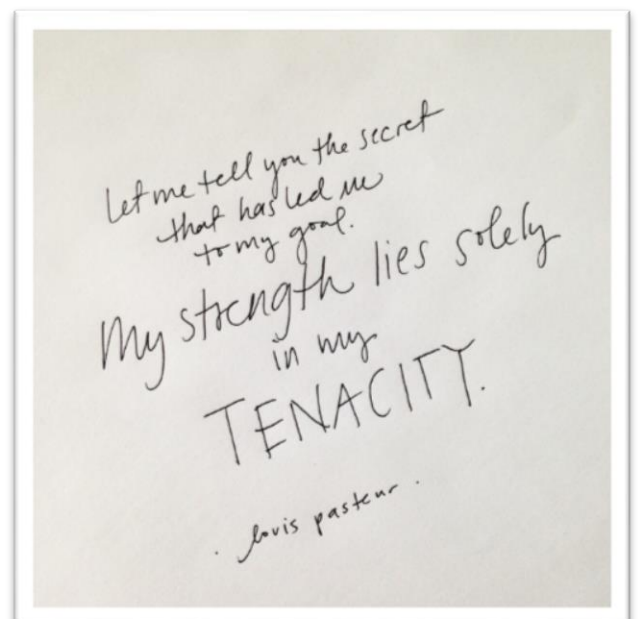 Let me tell you the secret
that has led me
to my goal.
My strength lies solely
in my
TENACITY.
. louis pasteur .